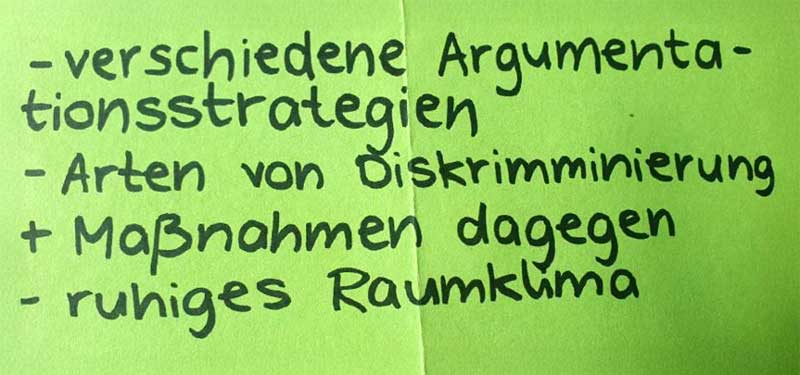 - verschiedene Argumenta-
tionsstrategien
- Arten von Diskrimminierung
+ Maßnahmen dagegen
- ruhiges Raumklima